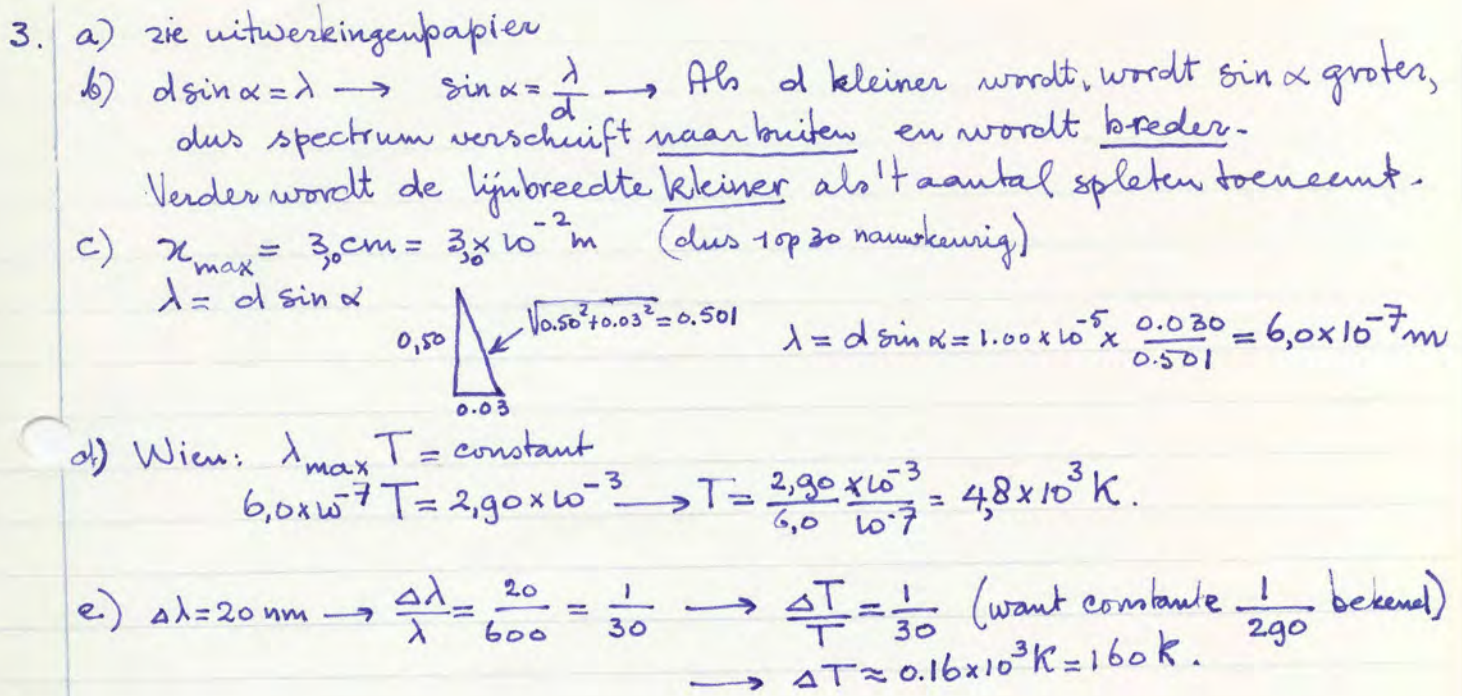 3. a) zie uitwerkingenpapier
b) d sin α = λ → sin α = λ/d → Als d kleiner wordt, wordt sin α groter,
dus spectrum verschuift naar buiten en wordt breder.
Verder wordt de lijnbreedte kleiner als 't aantal spleten toeneemt.
c) x_max = 3,0 cm = 3,0 × 10^-2 m (dus 1 op 30 nauwkeurig)
λ = d sin α
0,50 √(0.50²+0.03²) = 0.501 λ = d sin α = 1.00 × 10^-5 × 0.030/0.501 = 6,0 × 10^-7 m
0.03
d) Wien: λ_max T = constant
6,0 × 10^-7 T = 2,90 × 10^-3 → T = 2,90/6,0 × 10^-3/10^-7 = 4,8 × 10^3 K.
e) Δλ = 20 nm → Δλ/λ = 20/600 = 1/30 → ΔT/T = 1/30 (want constante 1/290 bekend)
→ ΔT ≈ 0.16 × 10^3 K = 160 K.